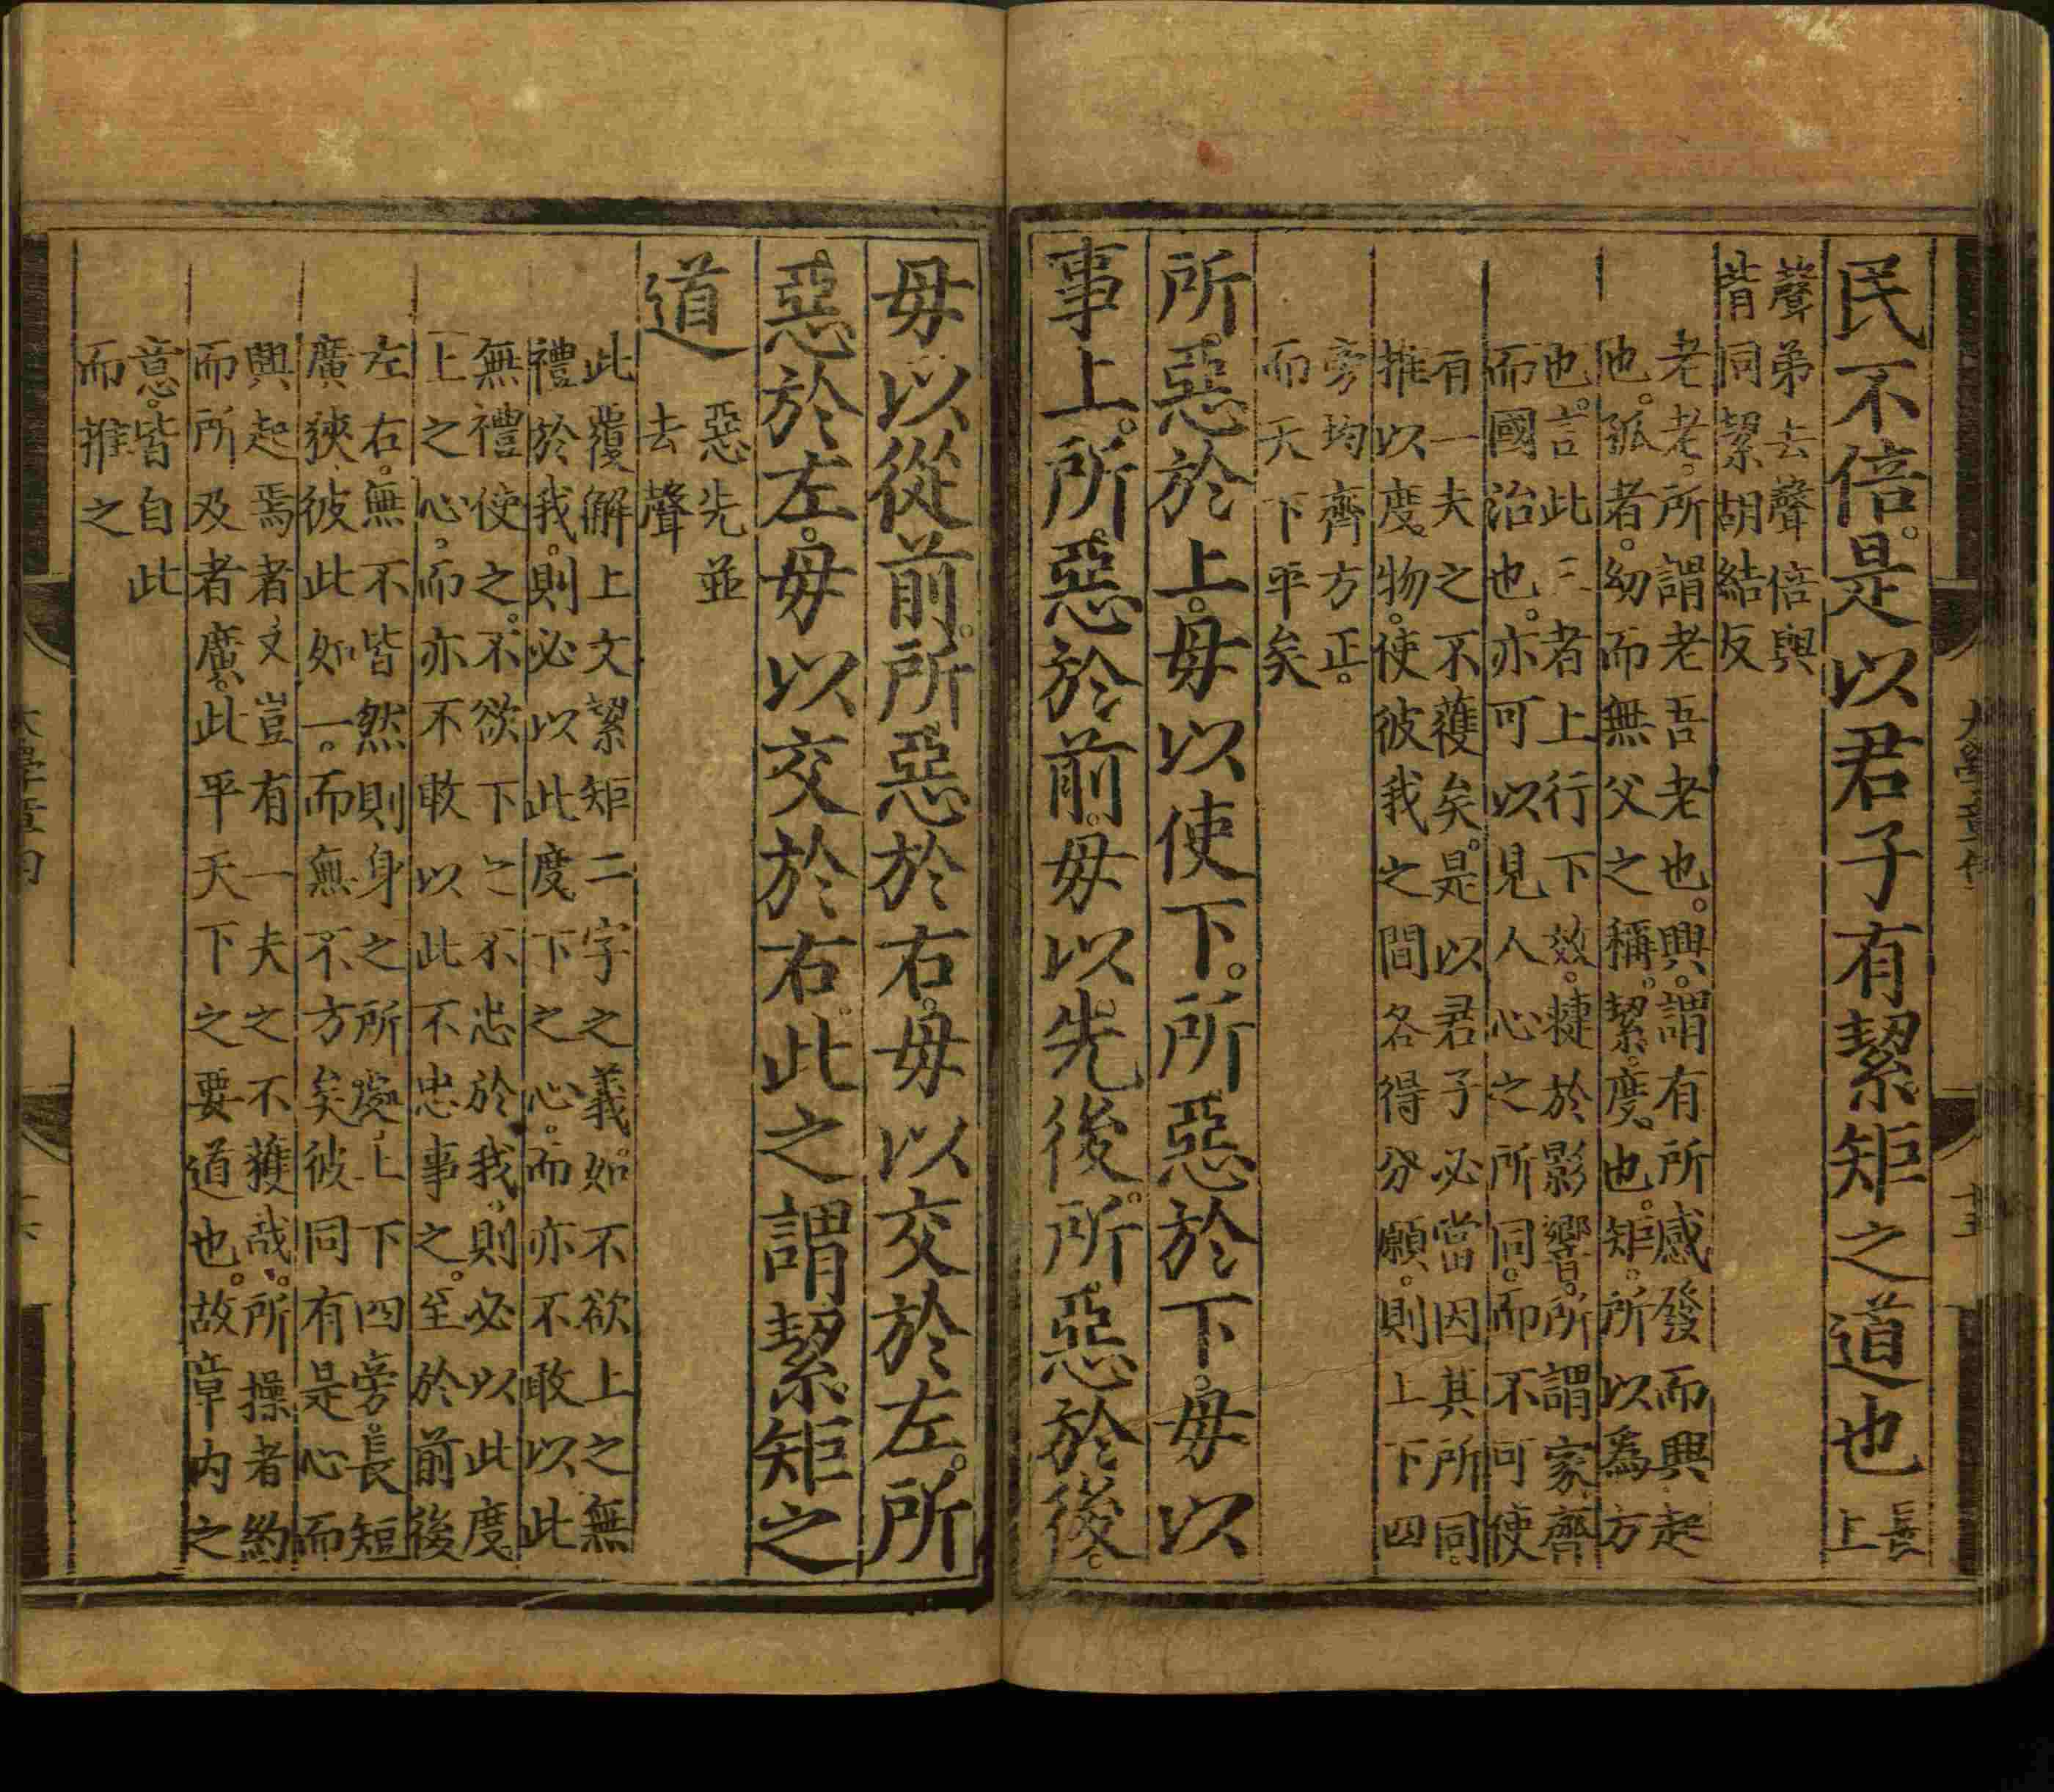 民不倍。是以君子有絜矩之道也長
上
聲弟去聲倍與
背同絜胡結反
老老。所謂老吾老也。興。謂有所感發而興起
也。孤者。幼而無父之稱。絜。度也。矩。所以爲方
也。言此三者上行下效。捷於影響。所謂家齊
而國治也。亦可以見人心之所同。而不可使
有一夫之不獲矣。是以君子必當因其所同。
推以度物。使彼我之間各得分願。則上下四
旁均齊方正。
而天下平矣
所惡於上。毋以使下。所惡於下。毋以
事上。所惡於前。毋以先後。所惡於後。
毋以從前。所惡於右。毋以交於左。所
惡於左。毋以交於右。此之謂絜矩之
道
惡先並
去聲
此覆解上文絜矩二字之義。如不欲上之無
禮於我。則必以此度下之心。而亦不敢以此
無禮使之。不欲下之不忠於我。則必以此度
上之心。而亦不敢以此不忠事之。至於前後
左右。無不皆然則身之所處上下四旁。長短
廣狹。彼此如一。而無不方矣彼同有是心而
興起焉者又豈有一夫之不獲哉。所操者約
而所及者廣。此平天下之要道也。故章內之
意。皆自此
而推之